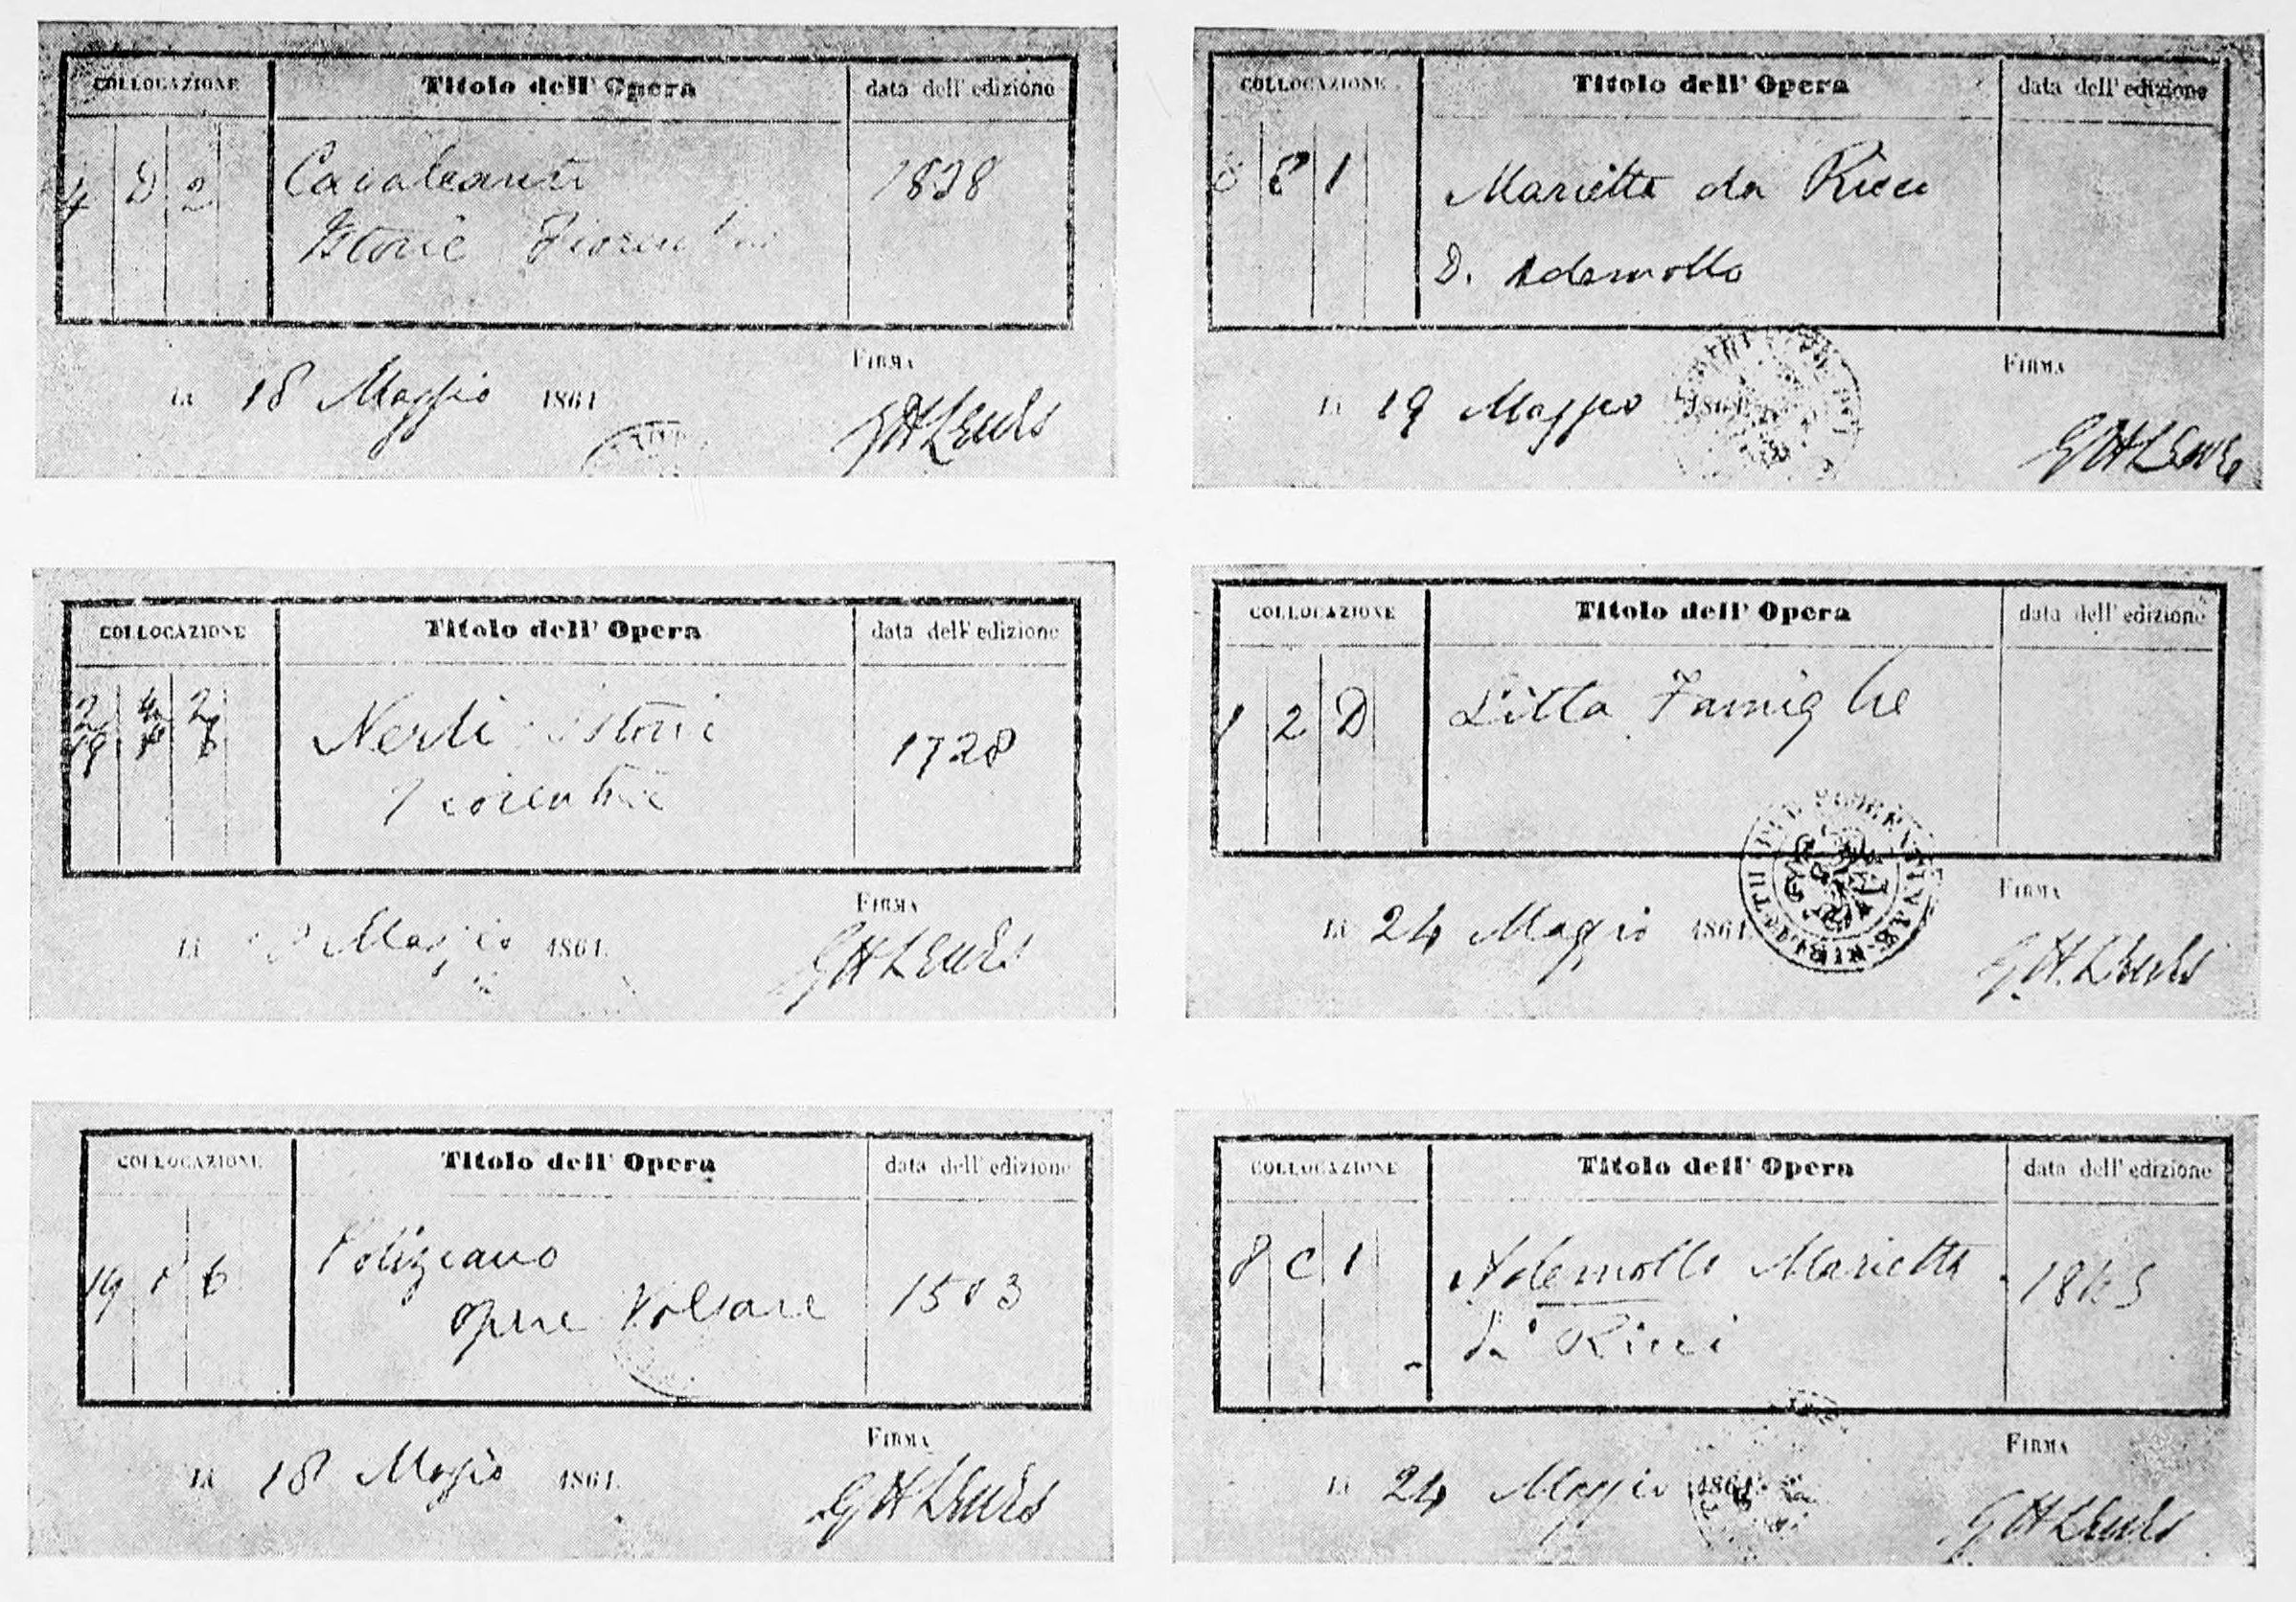 COLLOCAZIONE Titolo dell' Opera data dell' edizione
4 D 2 Cavalcanti 1838
Istorie Fiorentine
FIRMA
LI 18 Maggio 1861
GHLewes
COLLOCAZIONE Titolo dell' Opera data dell' edizione
8 1 Marietta da Ricci
D. Ademollo
FIRMA
LI 19 Maggio 1861
GHLewes
COLLOCAZIONE Titolo dell' Opera data dell' edizione
Nerli Istorie 1728
Fiorentine
FIRMA
LI Maggio 1861.
GHLewes
COLLOCAZIONE Titolo dell' Opera data dell' edizione
1 2 D Litta Famiglie
FIRMA
LI 24 Maggio 1861
G.H.Lewes
COLLOCAZIONE Titolo dell' Opera data dell' edizione
19 1 6 Poliziano
Opere Volgare 1513
FIRMA
LI 18 Maggio 1861.
GHLewes
COLLOCAZIONE Titolo dell' Opera data dell' edizione
8 C 1 Ademollo Marietta 1845
di Ricci
FIRMA
LI 24 Maggio 1861
GHLewes